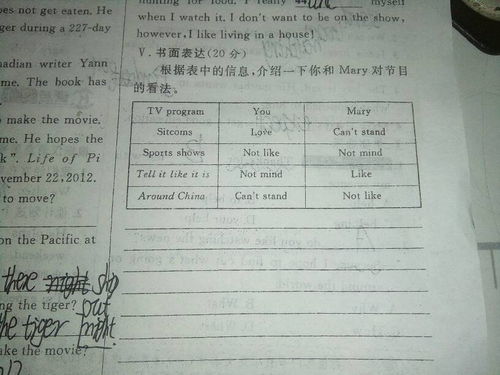 oes not get eaten. He
ger during a 227-day
nadian writer Yann
me. The book has
make the movie.
me. He hopes the
k". Life of Pi
vember 22, 2012.
to move?
on the Pacific at
there might
ng the tiger? put
the tiger
ake the movie?
hunting for food. I really myself
when I watch it. I don't want to be on the show,
however, I like living in a house!
V. 书面表达(20 分)
根据表中的信息,介绍一下你和 Mary 对节目
的看法。
TV program You Mary
Sitcoms Love Can't stand
Sports shows Not like Not mind
Tell it like it is Not mind Like
Around China Can't stand Not like